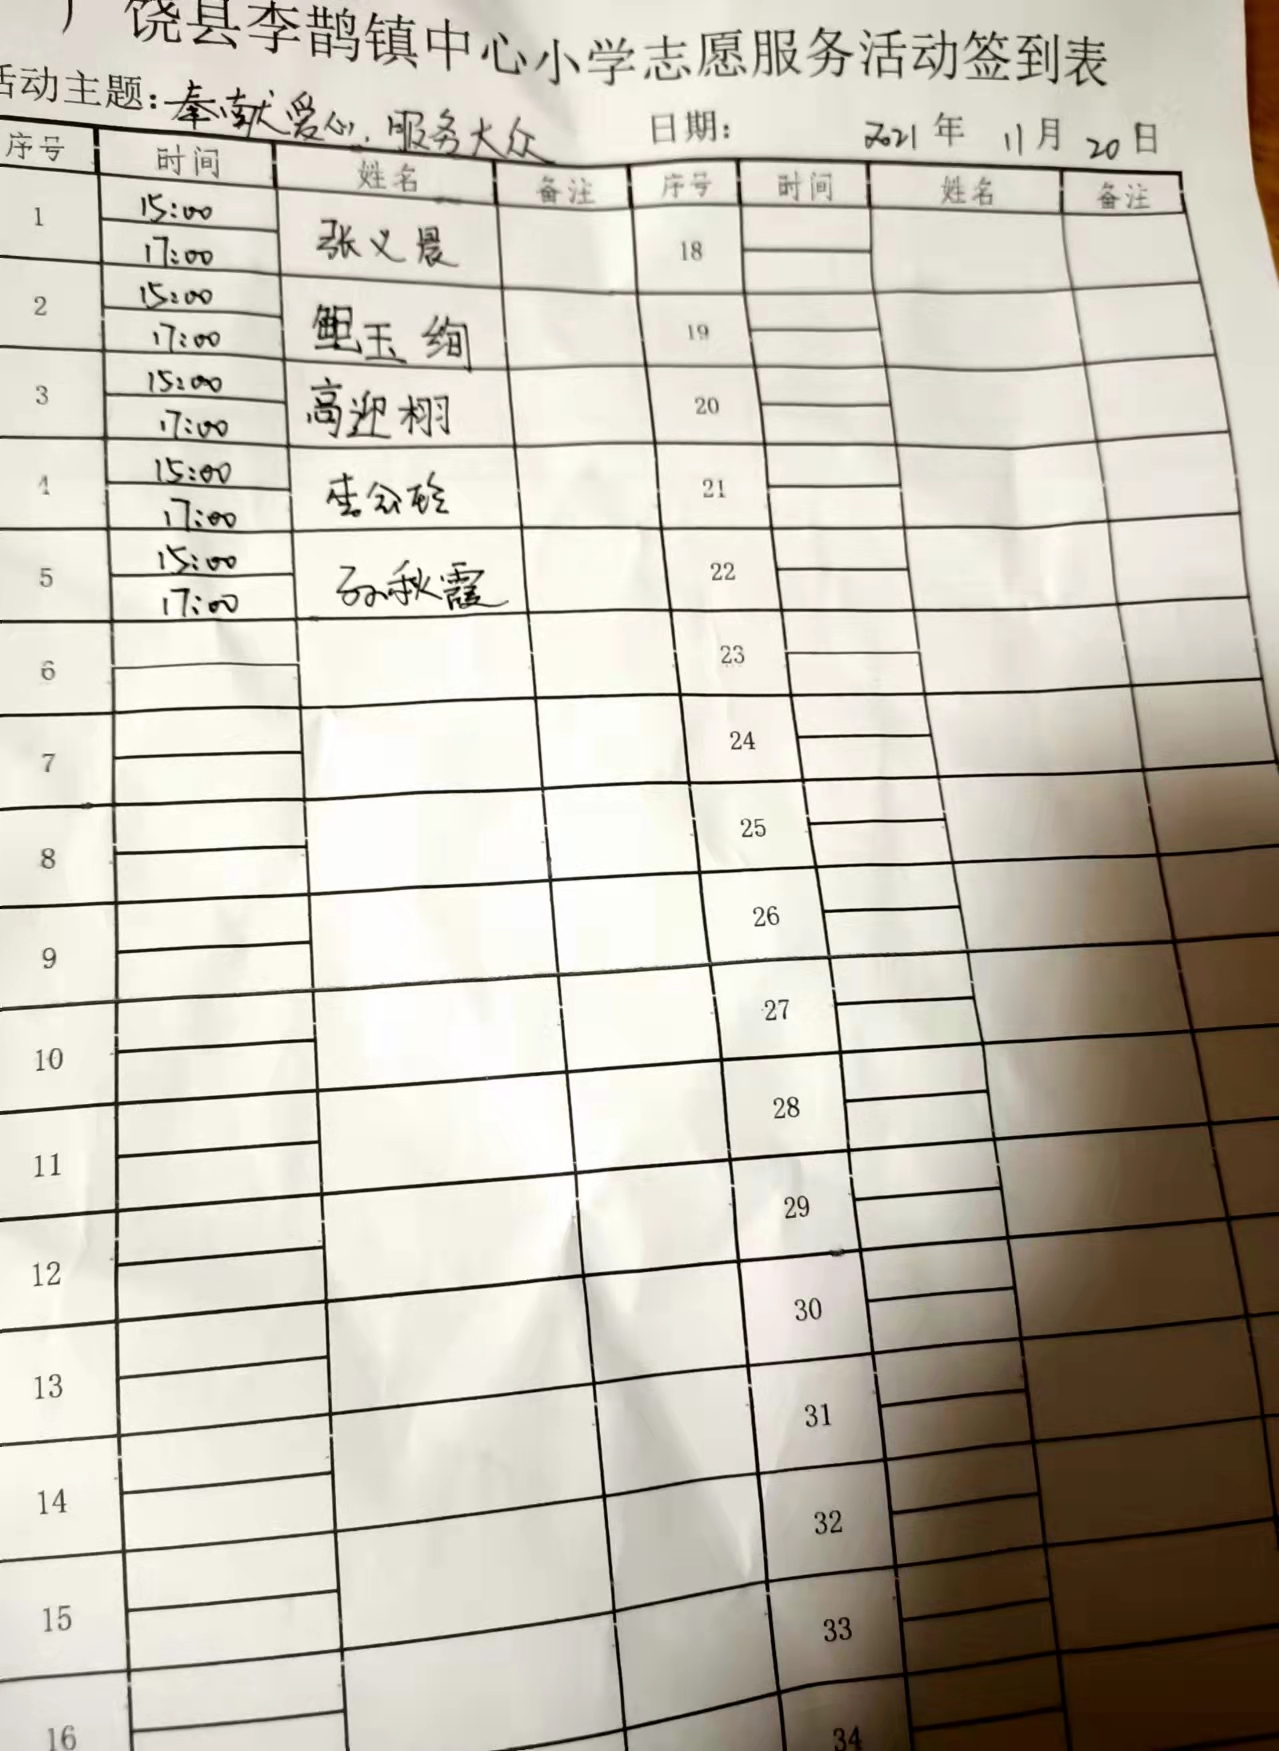 广饶县李鹊镇中心小学志愿服务活动签到表
活动主题:奉献爱心、服务大众 日期: 2021年 11月 20日
序号 时间 姓名 备注 序号 时间 姓名 备注
1 15:00 17:00 张义晨 18
2 15:00 17:00 鲍玉绚 19
3 15:00 17:00 高迎栩 20
4 15:00 17:00 21
5 15:00 17:00 孙秋霞 22
6 23
7 24
8 25
9 26
10 27
11 28
12 29
13 30
14 31
15 32
16 33
34